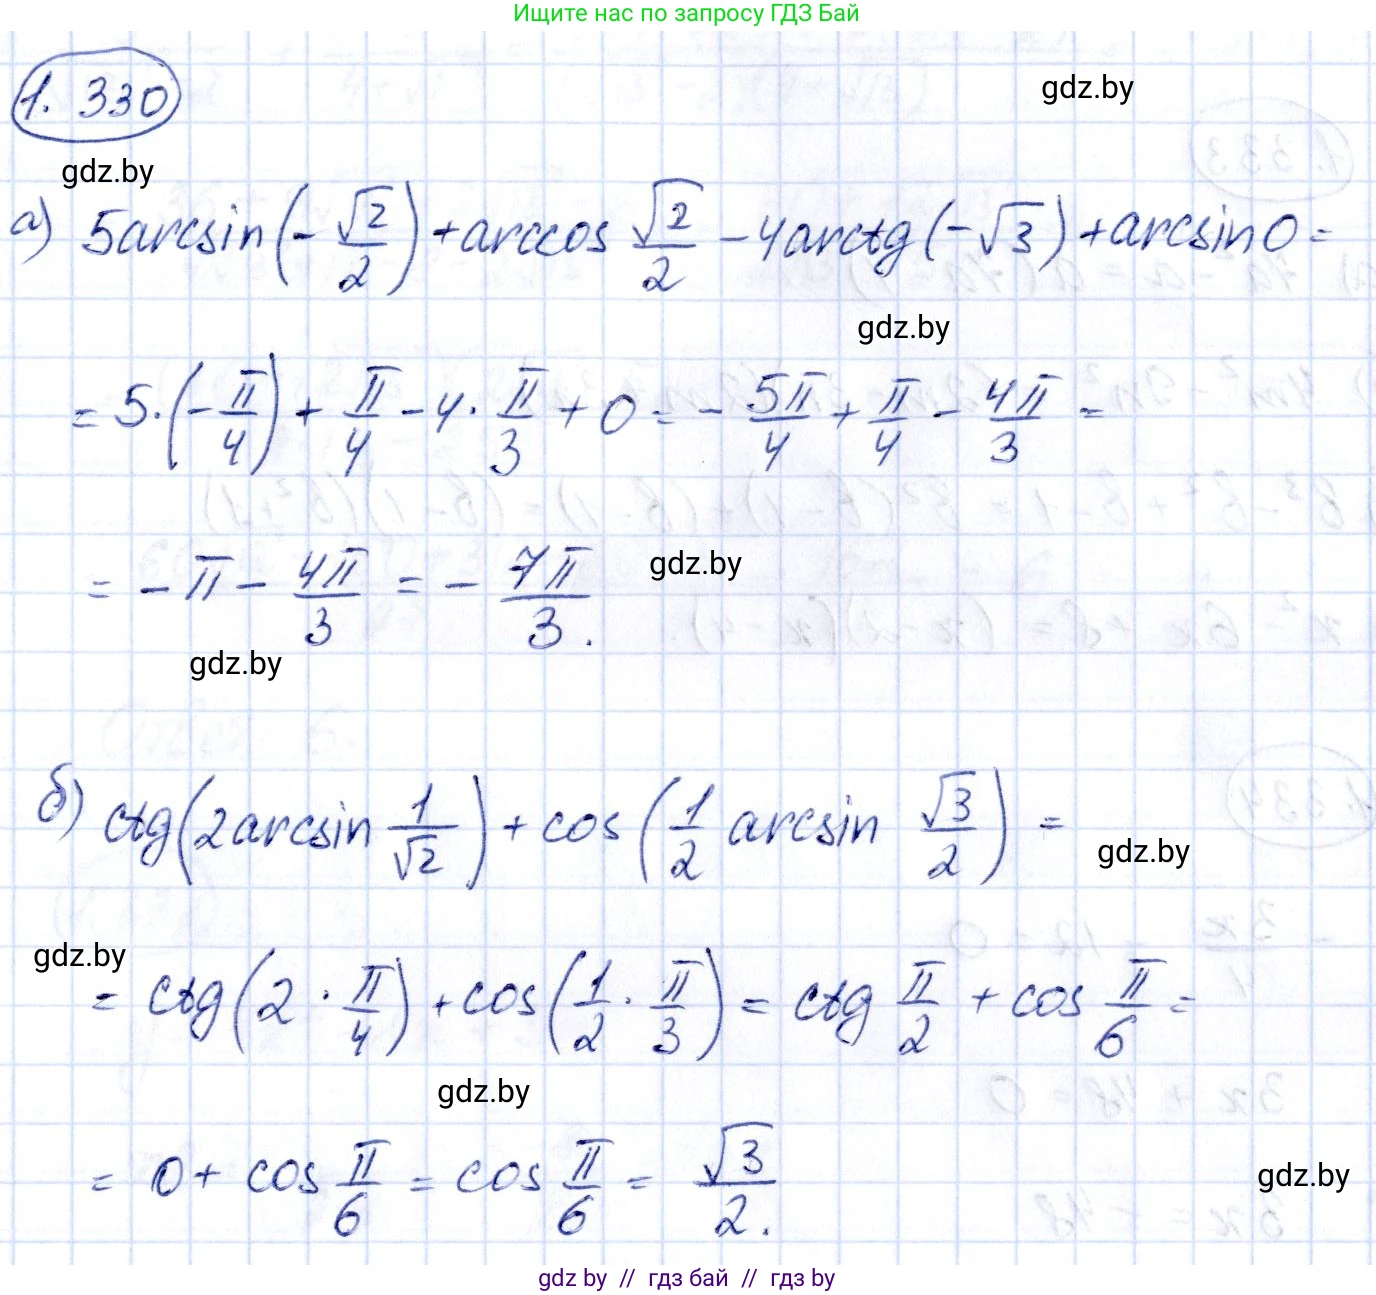 Ищите нас по запросу ГДЗ Бай
1.330
gdz.by
gdz.by
а) 5arcsin(-√2/2)+arccos √2/2 -4arctg(-√3)+arcsin0=
gdz.by
= 5·(-π/4)+ π/4 -4· π/3 + 0 = - 5π/4 + π/4 - 4π/3 =
= -π- 4π/3 = - 7π/3.
gdz.by
gdz.by
б) ctg(2arcsin 1/√2)+cos(1/2 arcsin √3/2) =
gdz.by
gdz.by
= ctg(2 · π/4)+cos(1/2 · π/3) = ctg π/2 + cos π/6 =
gdz.by
= 0+ cos π/6 = cos π/6 = √3/2.
gdz.by
gdz by // гдз бай // gdz by